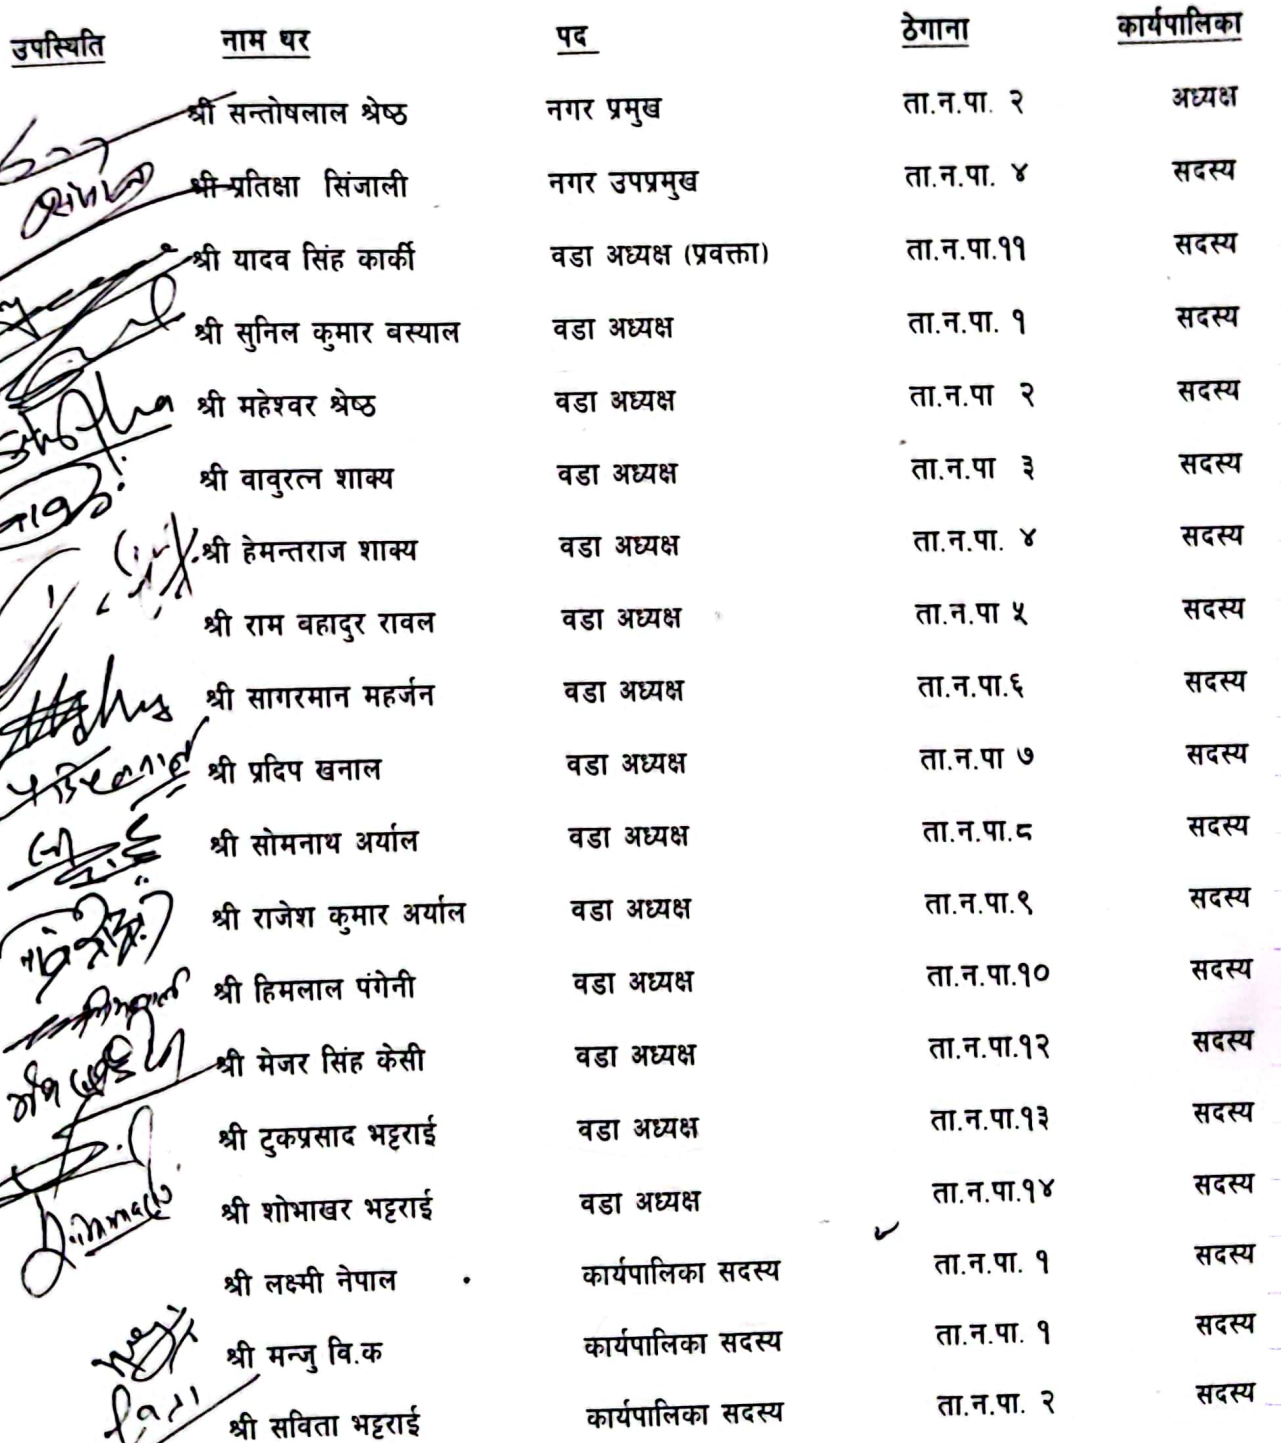 उपस्थिति नाम थर पद ठेगाना कार्यपालिका
श्री सन्तोषलाल श्रेष्ठ नगर प्रमुख ता.न.पा. २ अध्यक्ष
श्री प्रतिक्षा सिंजाली नगर उपप्रमुख ता.न.पा. ४ सदस्य
श्री यादव सिंह कार्की वडा अध्यक्ष (प्रवक्ता) ता.न.पा.११ सदस्य
श्री सुनिल कुमार बस्याल वडा अध्यक्ष ता.न.पा. १ सदस्य
श्री महेश्वर श्रेष्ठ वडा अध्यक्ष ता.न.पा २ सदस्य
श्री वावुरत्न शाक्य वडा अध्यक्ष ता.न.पा ३ सदस्य
श्री हेमन्तराज शाक्य वडा अध्यक्ष ता.न.पा. ४ सदस्य
श्री राम बहादुर रावल वडा अध्यक्ष ता.न.पा ५ सदस्य
श्री सागरमान महर्जन वडा अध्यक्ष ता.न.पा.६ सदस्य
श्री प्रदिप खनाल वडा अध्यक्ष ता.न.पा ७ सदस्य
श्री सोमनाथ अर्याल वडा अध्यक्ष ता.न.पा.८ सदस्य
श्री राजेश कुमार अर्याल वडा अध्यक्ष ता.न.पा.९ सदस्य
श्री हिमलाल पंगेनी वडा अध्यक्ष ता.न.पा.१० सदस्य
श्री मेजर सिंह केसी वडा अध्यक्ष ता.न.पा.१२ सदस्य
श्री टुकप्रसाद भट्टराई वडा अध्यक्ष ता.न.पा.१३ सदस्य
श्री शोभाखर भट्टराई वडा अध्यक्ष ता.न.पा.१४ सदस्य
श्री लक्ष्मी नेपाल कार्यपालिका सदस्य ता.न.पा. १ सदस्य
श्री मन्जु वि.क कार्यपालिका सदस्य ता.न.पा. १ सदस्य
श्री सविता भट्टराई कार्यपालिका सदस्य ता.न.पा. २ सदस्य